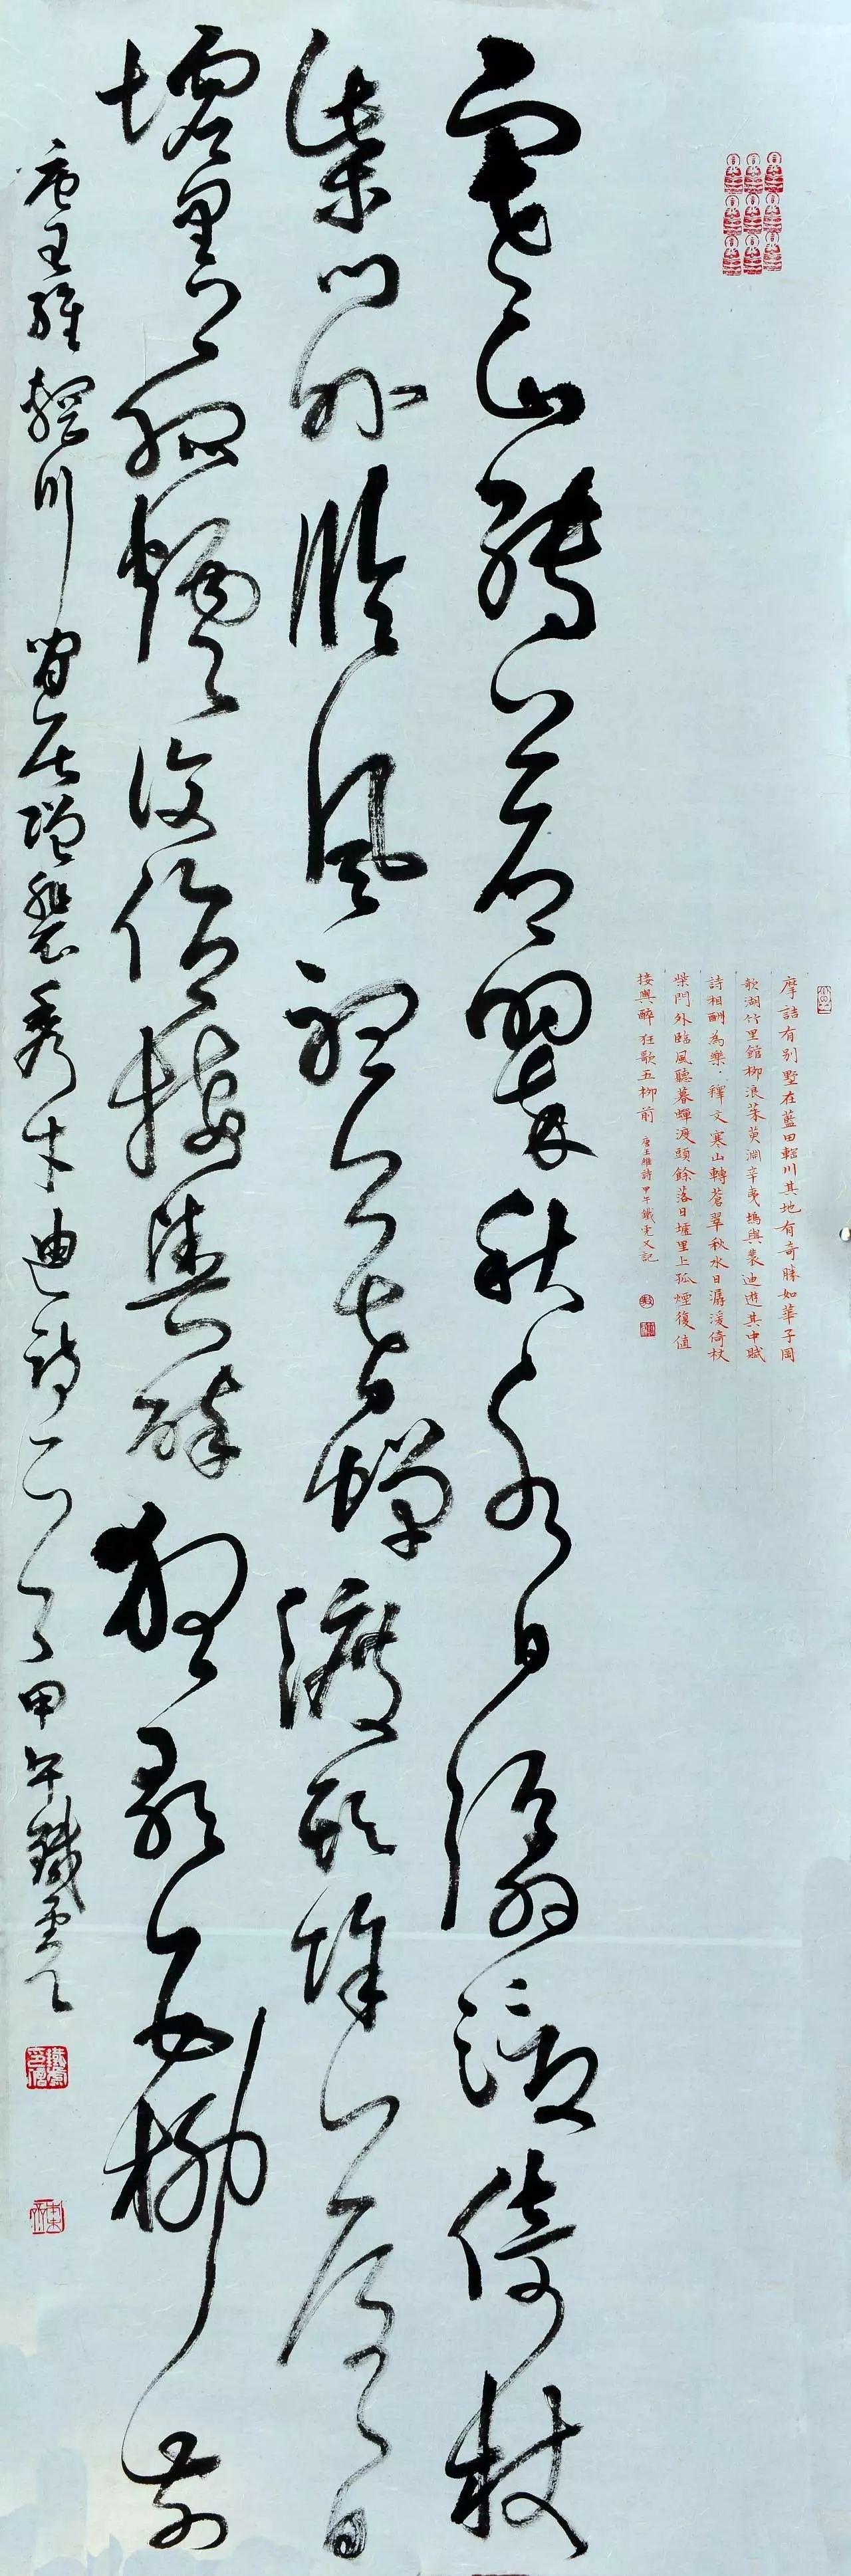 摩詰有别墅在藍田輞川其地有奇勝如華子岡
欹湖竹里館柳浪茱萸沜辛夷塢與裴迪遊其中賦
詩相酬為樂．釋文寒山轉蒼翠秋水日潺湲倚杖
柴門外臨風聽暮蟬渡頭餘落日墟里上孤煙復值
接輿醉狂歌五柳前 唐王維詩甲午鐵雲又記
寒山轉蒼翠秋水日潺湲倚杖
柴門外臨風聽暮蟬渡頭餘落日
墟里上孤煙復值接輿醉狂歌五柳前
唐王維輞川閒居贈裴秀才迪詩一首甲午鐵雲